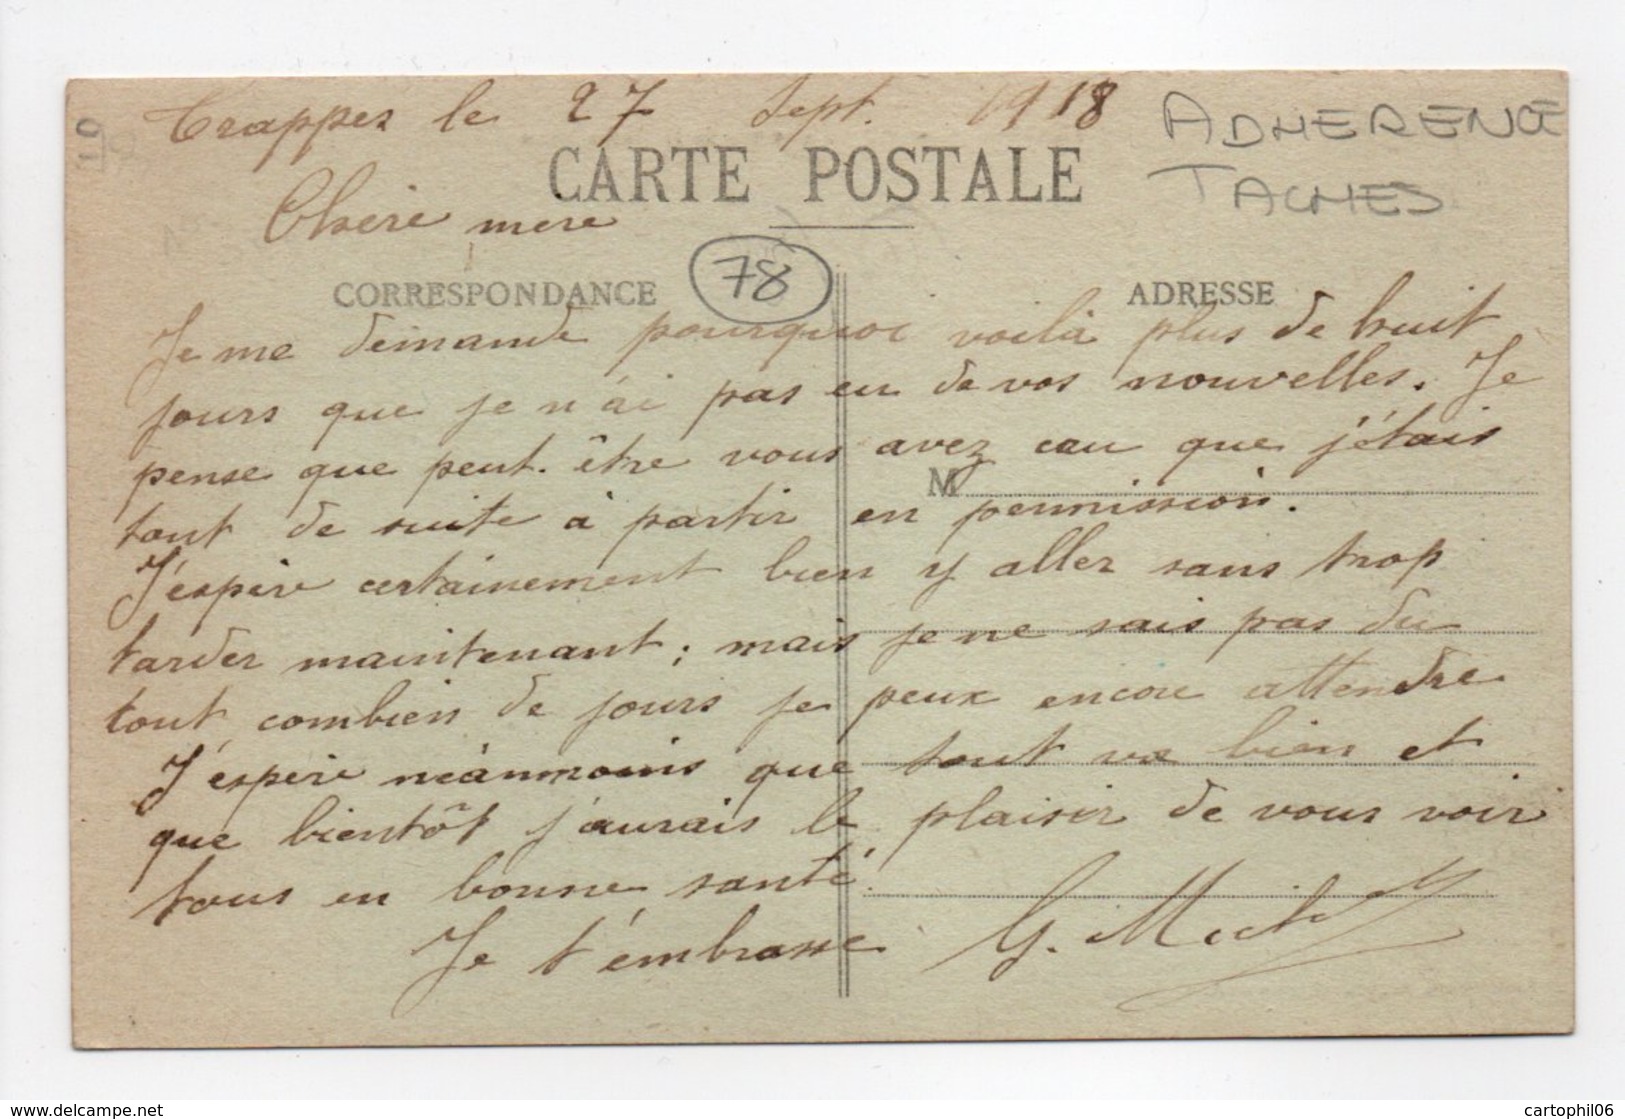 Trappes le 27 Sept. 1918
ADHERENCE
TACHES
10
CARTE POSTALE
Chère mère
78
CORRESPONDANCE
ADRESSE
Je me demande pourquoi voilà plus de huit
jours que je n'ai pas eu de vos nouvelles. Je
pense que peut-être vous avez cru que j'étais
M
tout de suite à partir en permission.
J'espère certainement bien y aller sans trop
tarder maintenant; mais je ne sais pas du
tout combien de jours je peux encore attendre
J'espère néanmoins que tout va bien et
que bientôt j'aurais le plaisir de vous voir
tous en bonne santé.
Je t'embrasse G.
www.delcampe.net
cartophil06